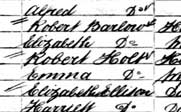 Alfred Do
Robert Barlow
Elizabeth Do
Robert Holt
Emma Do
Elizabeth Ellison
Harriett Do